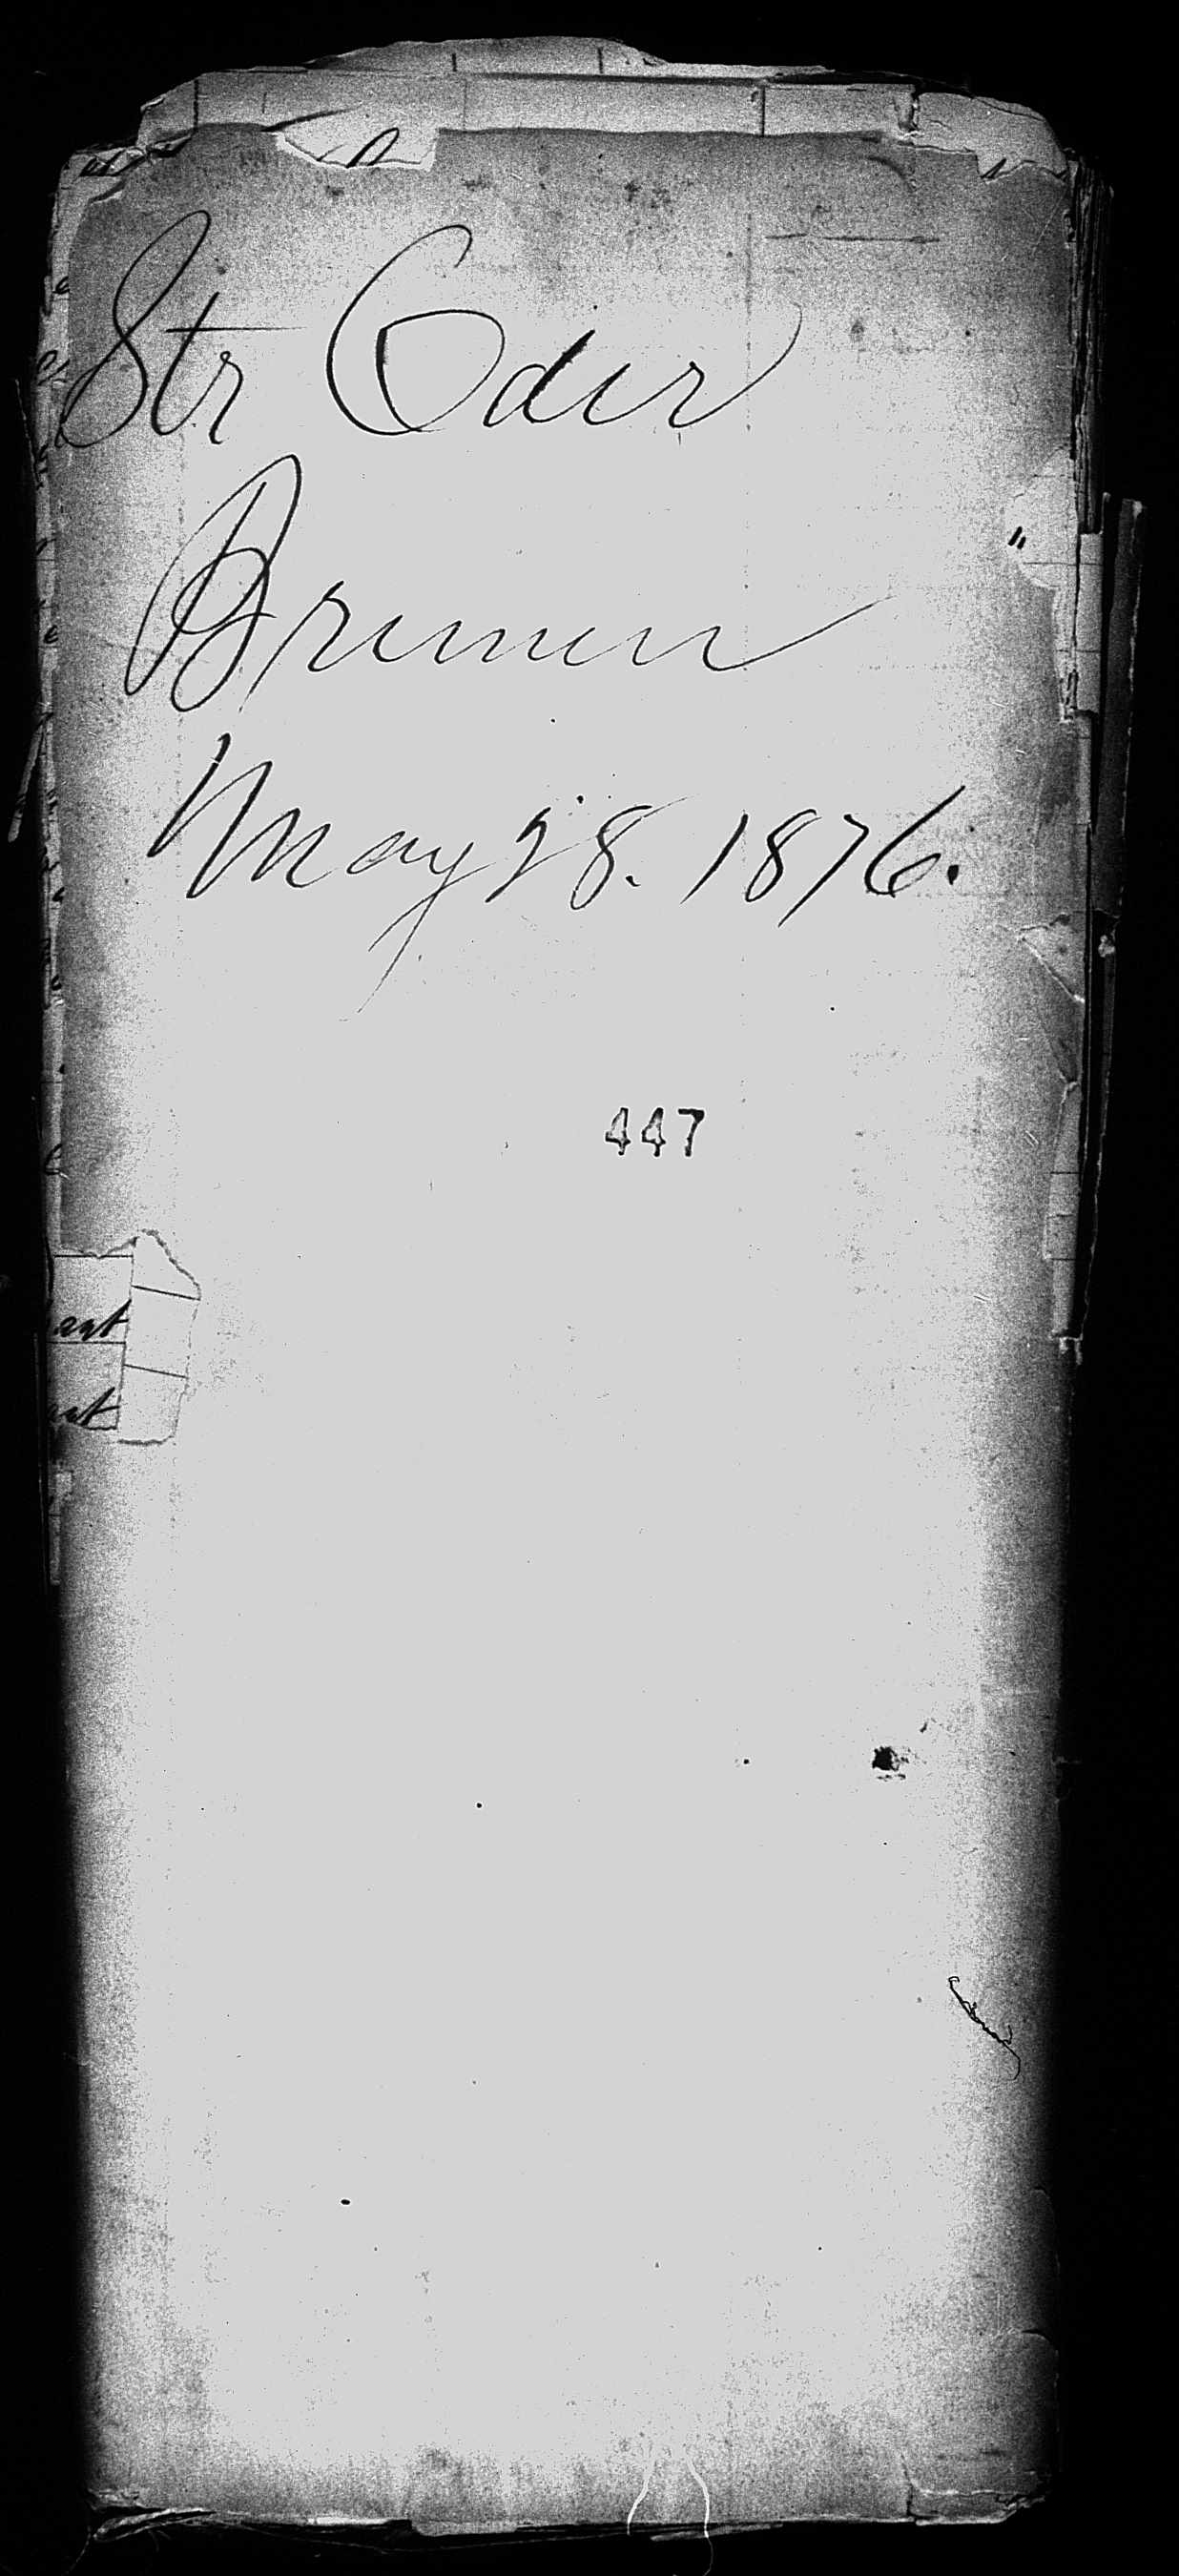 Str Oder
Bremen
May 28. 1876.
447